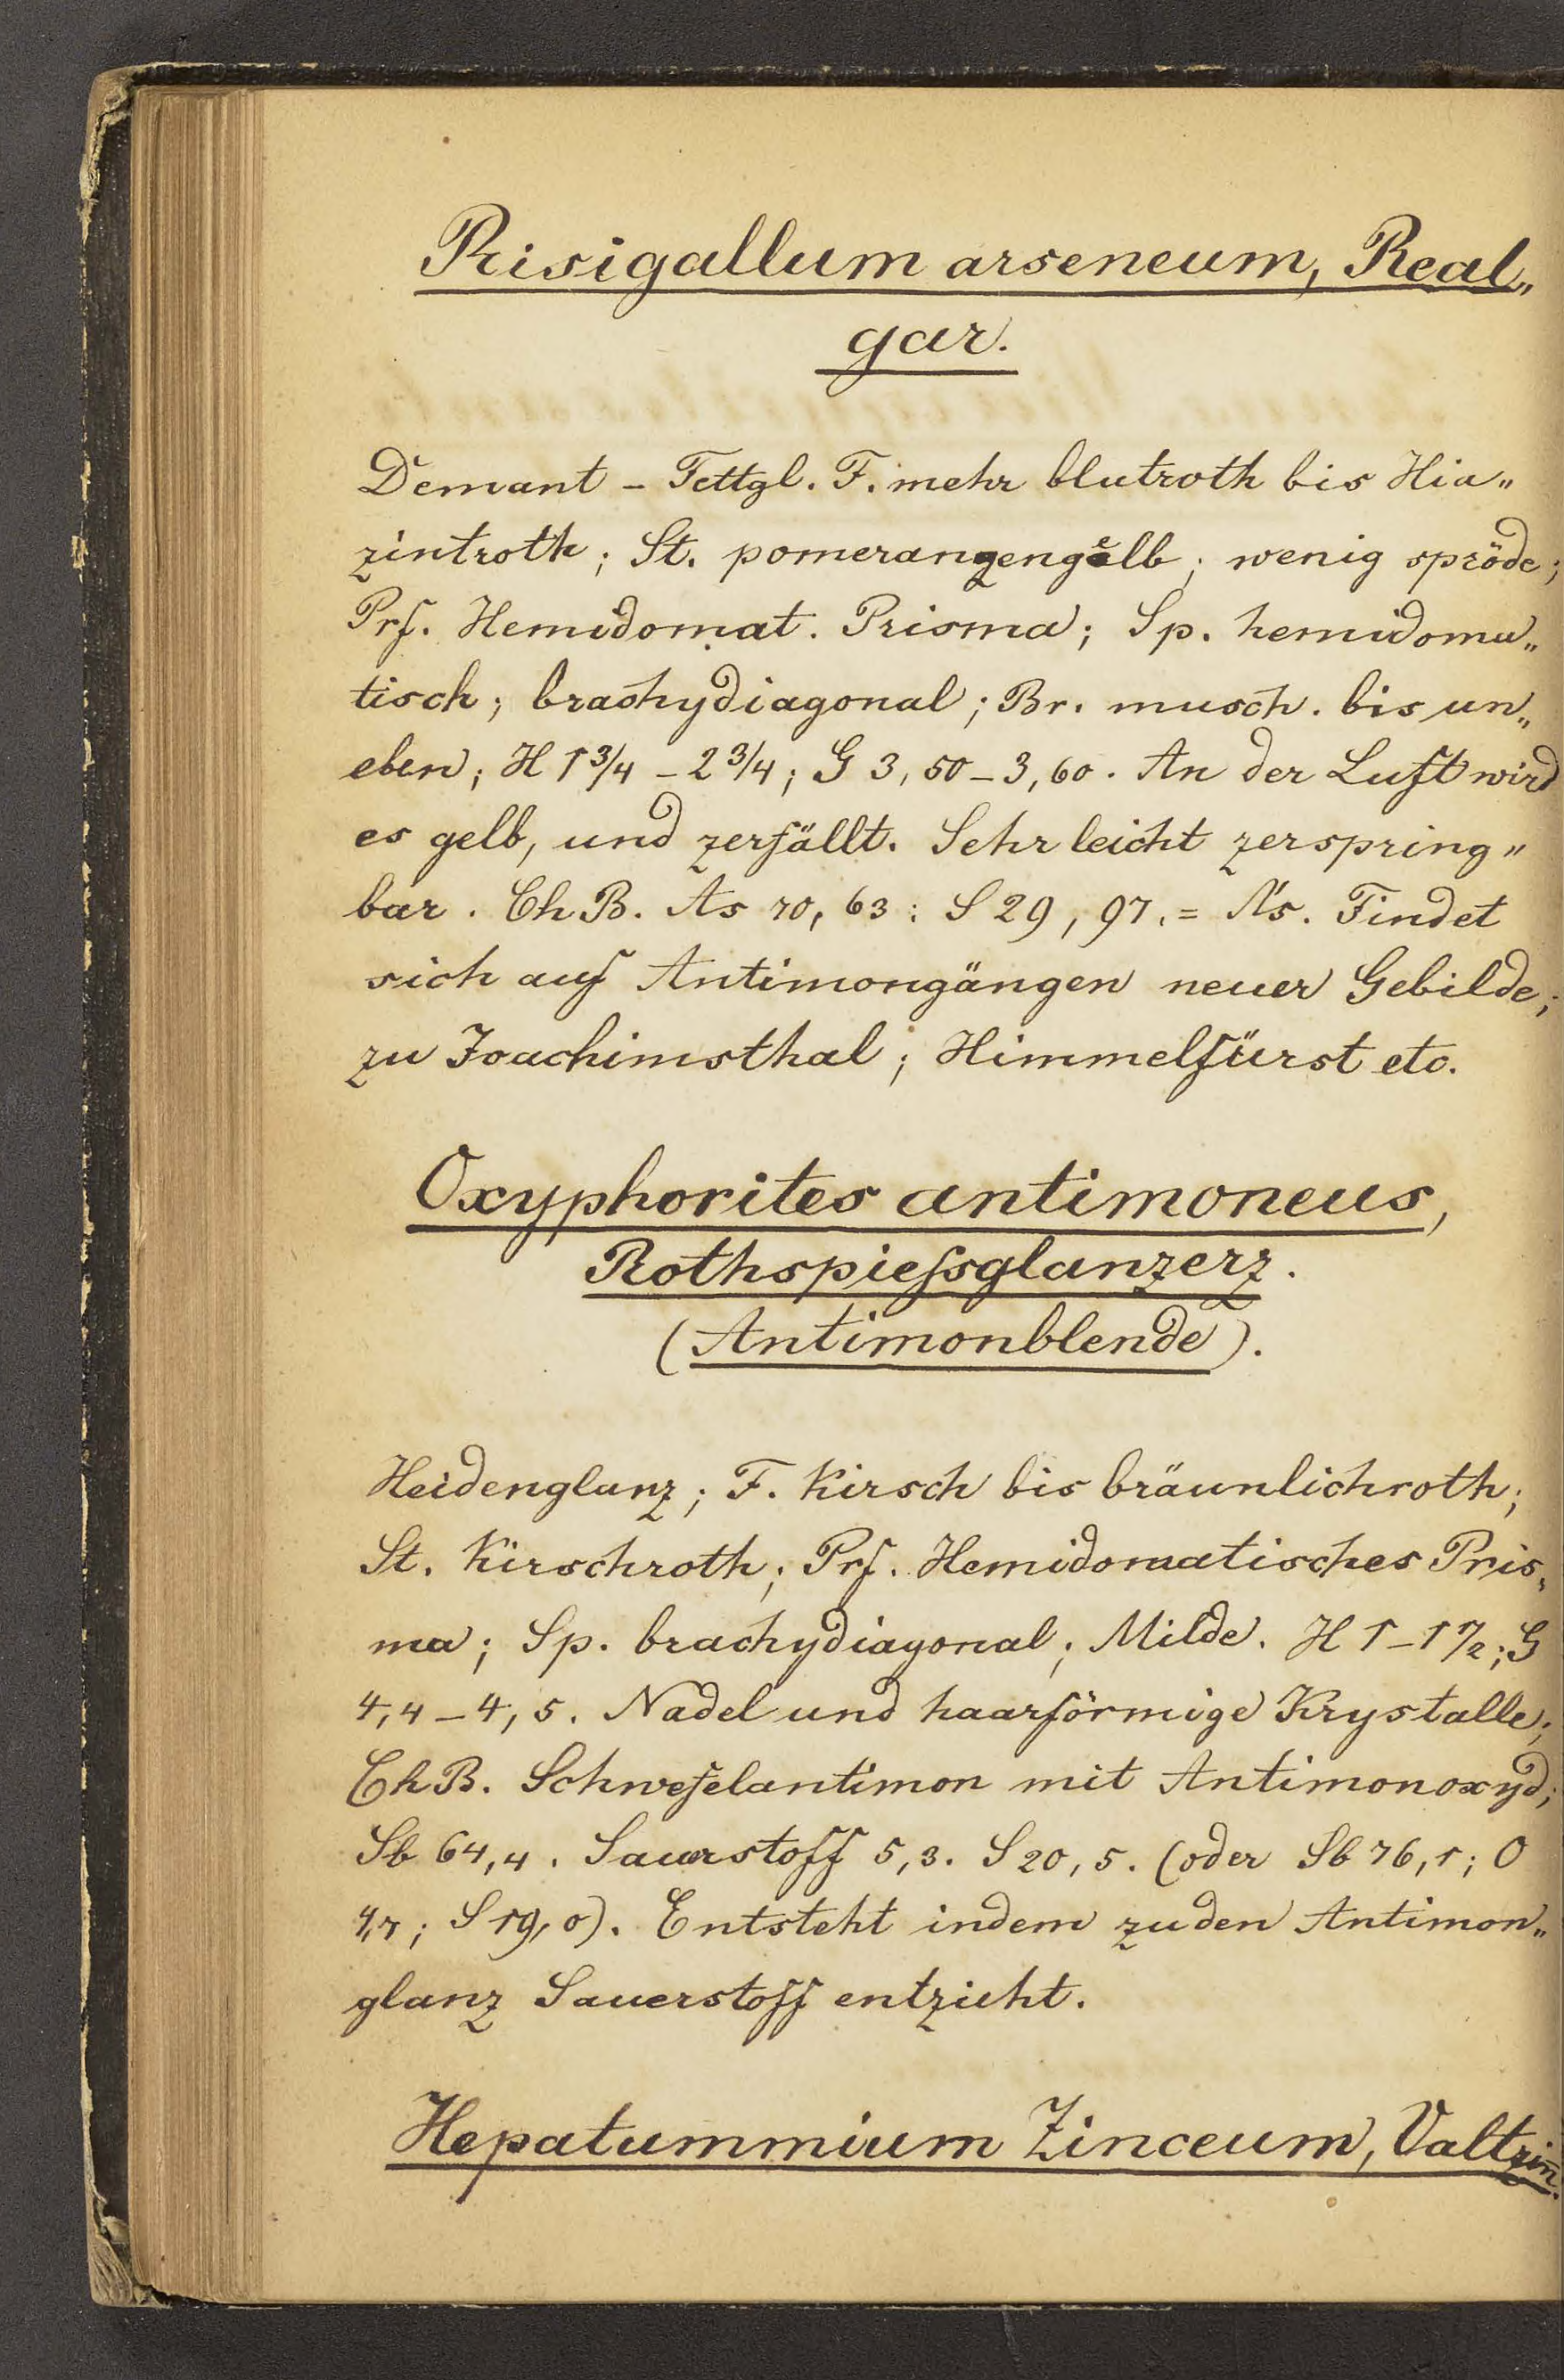 Risigallum arseneum, Real„
gar.
Demant - Fettgl. F. mehr blutroth bis Hia„
zintroth; St. pomeranzengelb; wenig spröde;
Prf. Hemidomat. Prisma; Sp. hemidoma„
tisch; brachydiagonal; Br. musch. bis un„
eben; H 1 3/4 - 2 3/4; G 3,50 - 3,60. An der Luft wird
es gelb, und zerfällt. Sehr leicht zerspring„
bar. Ch B. As 70,63; S 29,97. = Findet
sich auf Antimongängen neuer Gebilde;
zu Joachimsthal; Himmelfürst etc.
Oxyphorites antimoneus,
Rothspiessglanzerz.
(Antimonblende).
Heidenglanz; F. Kirsch bis bräunlichroth;
St. Kirschroth; Prf. Hemidomatisches Pris„
ma; Sp. brachydiagonal; Milde. H 1 - 1 1/2; G
4,4 - 4,5. Nadel und haarförmige Krystalle;
Ch B. Schwefelantimon mit Antimonoxyd;
Sb 64,4. Sauerstoff 5,3. S 20,5. (oder Sb 76,1; O
4,7; S 19,0). Entsteht indem zu den Antimon„
glanz Sauerstoff entzieht.
Hepatummium Zinceum, Valtzin.